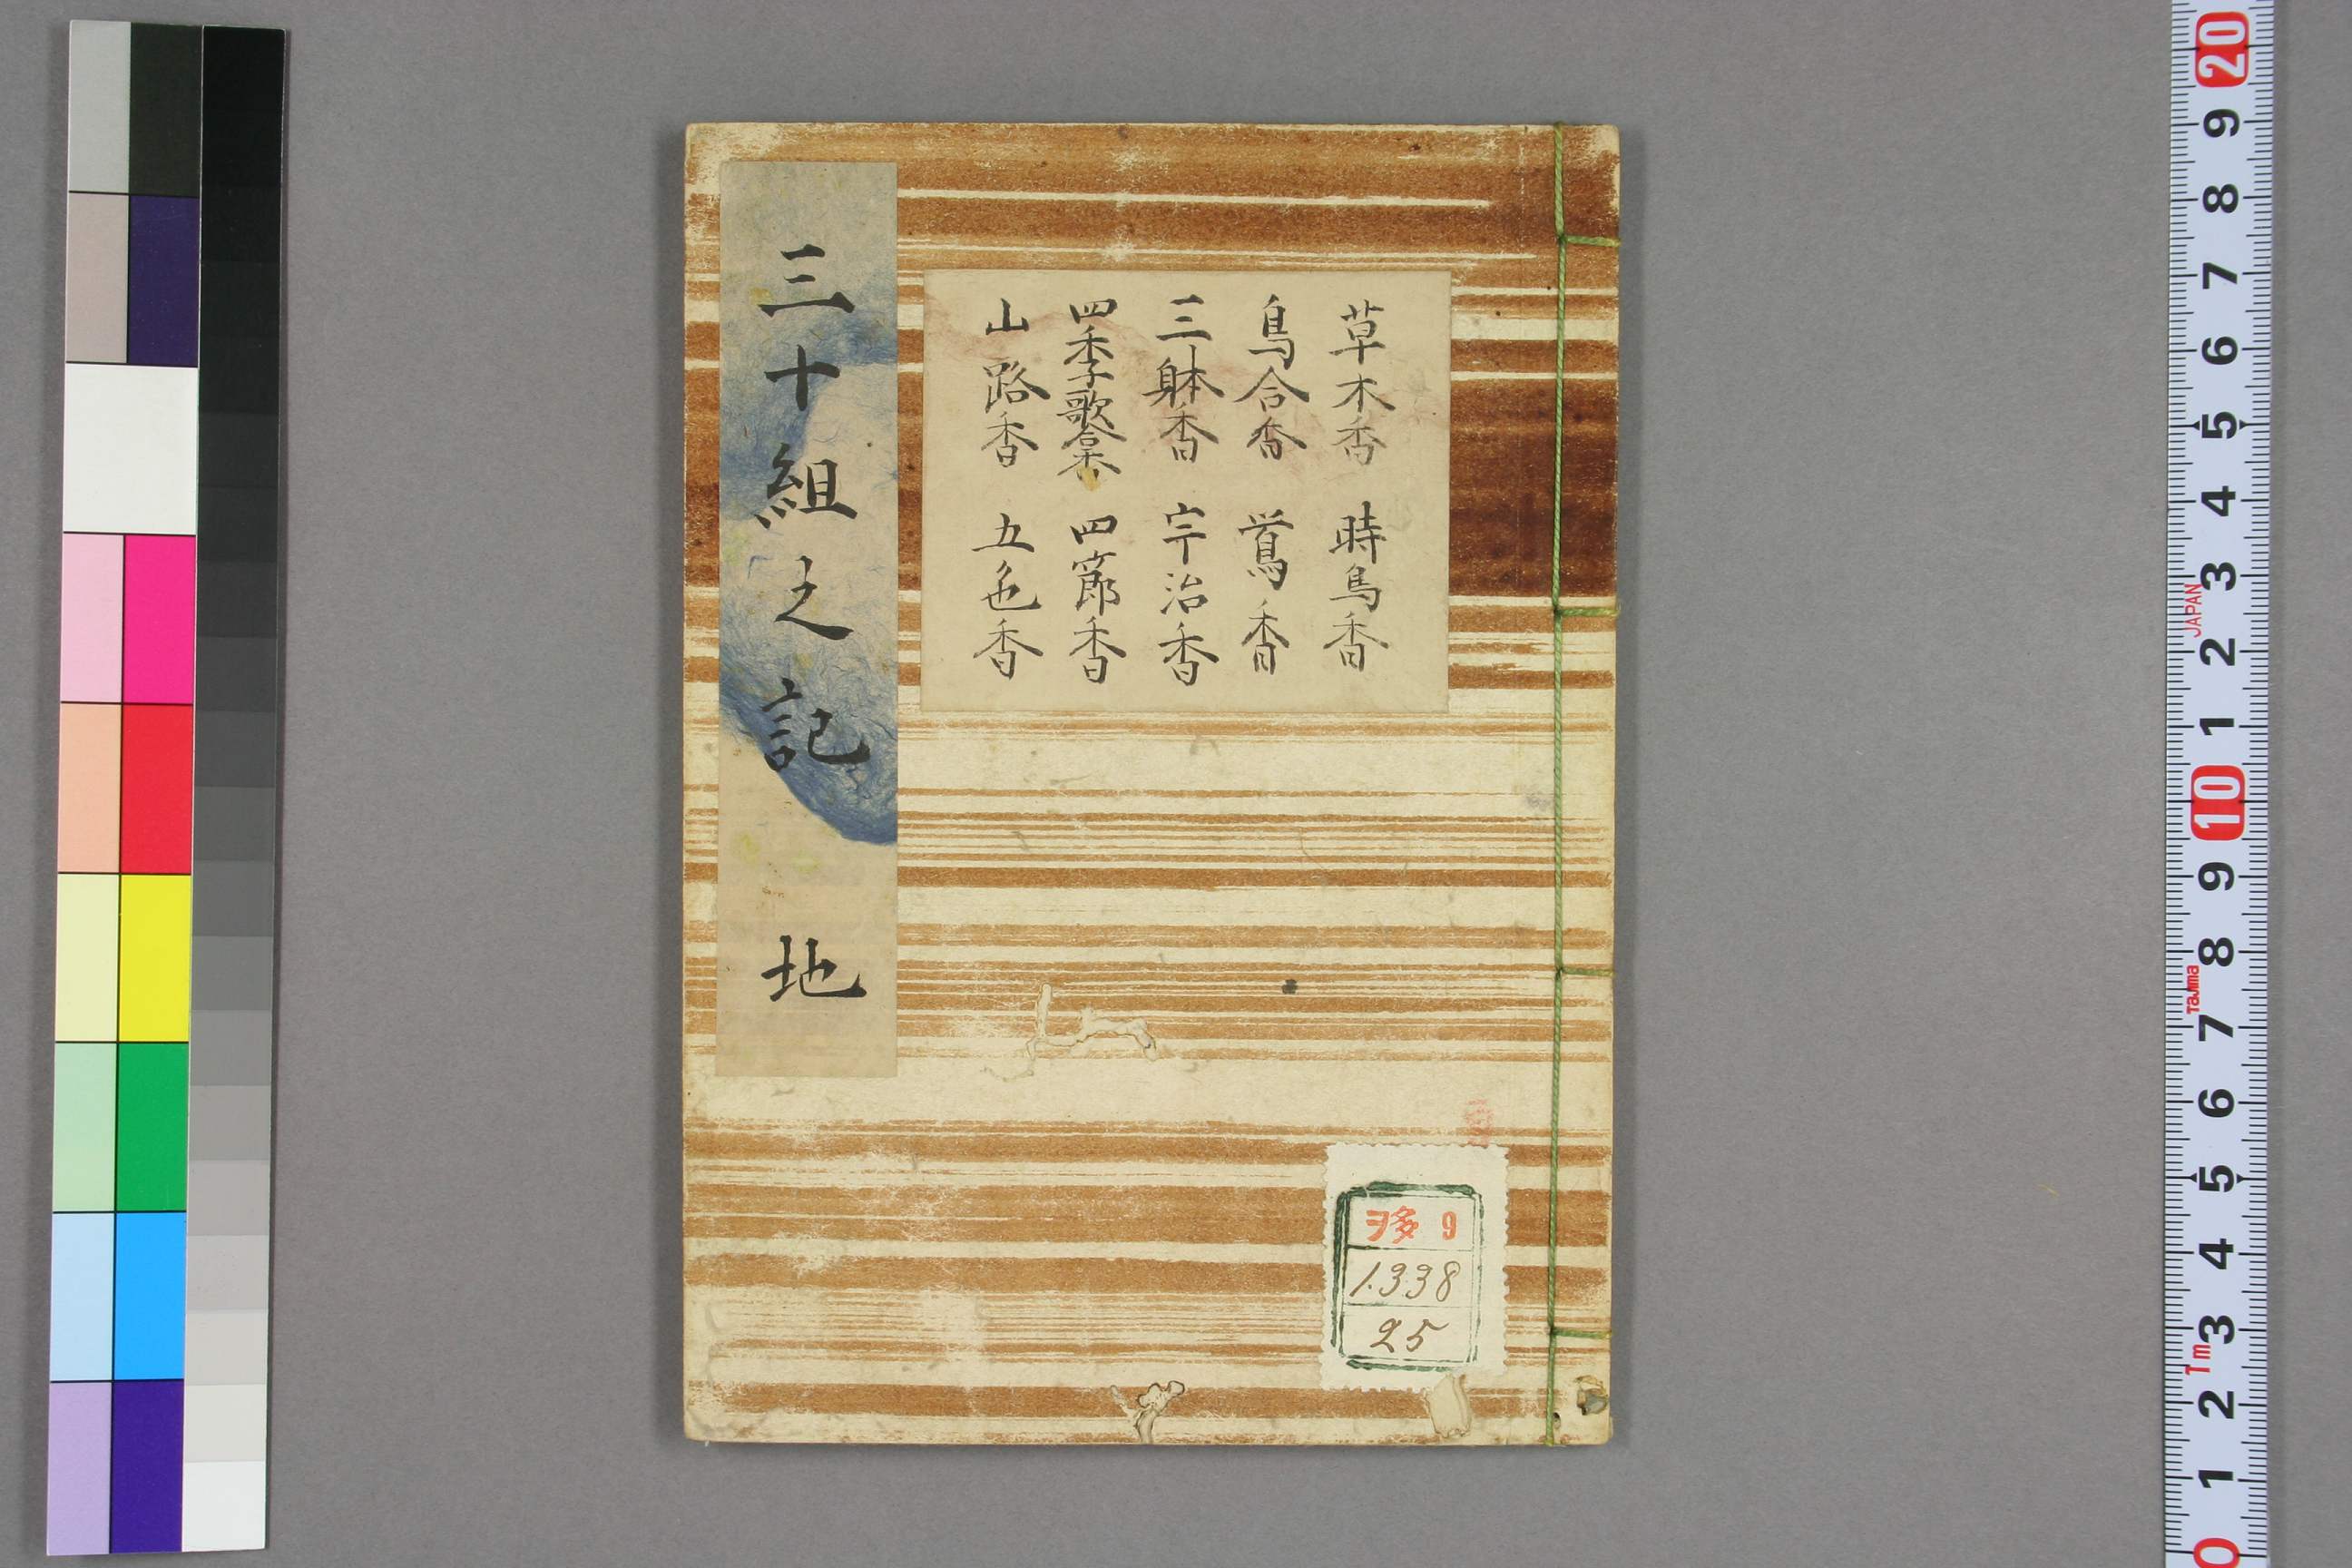 草木香　時鳥香
鳥合香　鶯香
三躰香　宇治香
四季歌合香　四節香
山路香　五色香
三十組之記　地
ヲ多 9
1.338
25
20
9
8
7
6
5
4
3
JAPAN
2
1
10
9
8
Tajima
7
6
5
4
3
1m
2
1
0